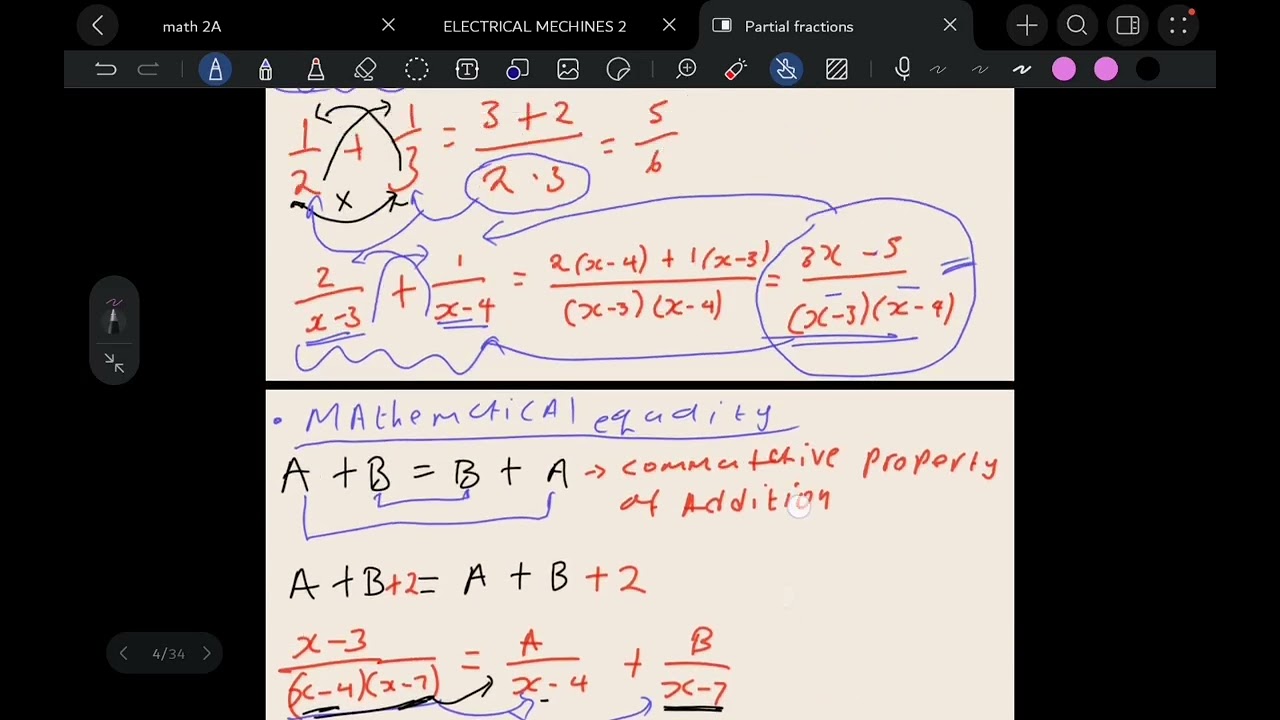 math 2A
ELECTRICAL MECHINES 2
Partial fractions
1/2 + 1/3 = (3 + 2)/(2 · 3) = 5/6
x
2/(x-3) + 1/(x-4) = (2(x-4) + 1(x-3))/((x-3)(x-4)) = (3x - 5)/((x-3)(x-4))
• MAthemcticAl equality
A + B = B + A → commutative property
of Addition
A + B + 2 = A + B + 2
(x-3)/((x-4)(x-7)) = A/(x-4) + B/(x-7)
4/34